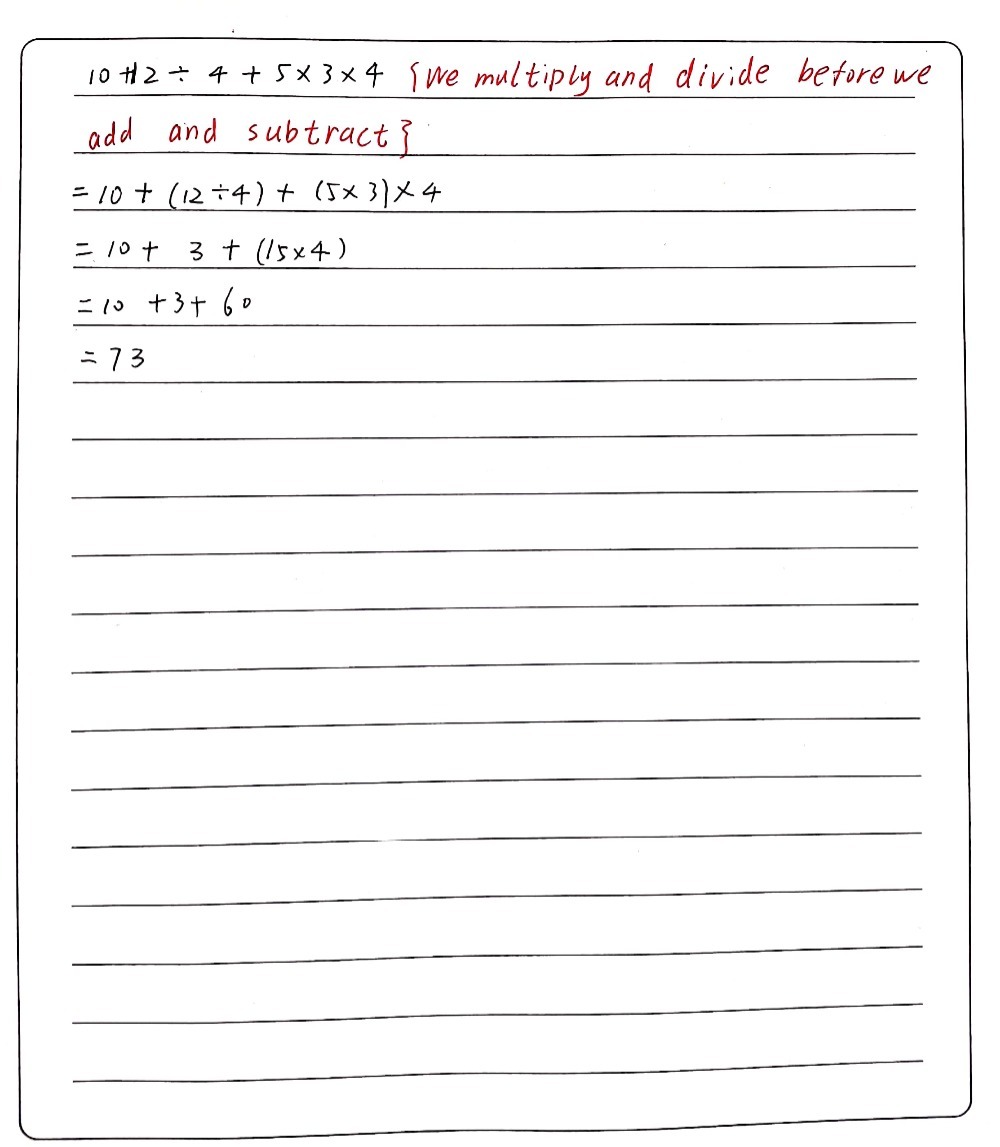 10+12 ÷ 4 + 5 × 3 × 4 {We multiply and divide before we
add and subtract}
= 10 + (12 ÷ 4) + (5 × 3) × 4
= 10 + 3 + (15 × 4)
= 10 + 3 + 60
= 73